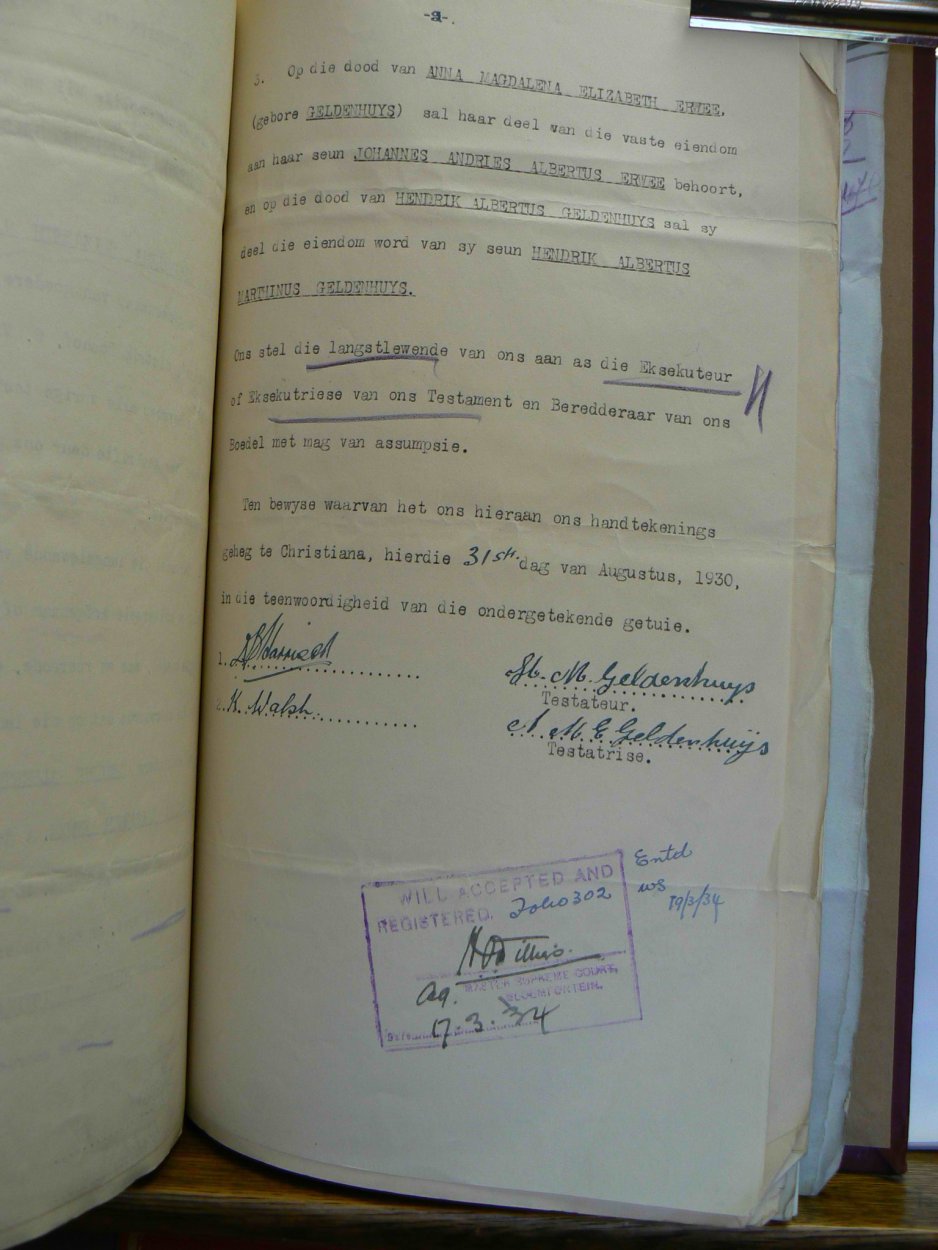 3. Op die dood van ANNA MAGDALENA ELIZABETH ERWEE,
(gebore GELDENHUYS) sal haar deel van die vaste eiendom
aan haar seun JOHANNES ANDRIES ALBERTUS ERWEE behoort,
en op die dood van HENDRIK ALBERTUS GELDENHUYS sal sy
deel die eiendom word van sy seun HENDRIK ALBERTUS
MARTHINUS GELDENHUYS.
Ons stel die langstlewende van ons aan as die Eksekuteur
of Eksekutriese van ons Testament en Beredderaar van ons
Boedel met mag van assumpsie.
Ten bewyse waarvan het ons hieraan ons handtekenings
geheg te Christiana, hierdie 31st. dag van Augustus, 1930,
in die teenwoordigheid van die ondergetekende getuie.
1.
H. M. Geldenhuys
Testateur.
K. Walsh.
A M E Geldenhuijs
Testatrise.
WILL ACCEPTED AND
REGISTERED. Folio 302
Entd
19/3/34
Ag. MASTER SUPREME COURT,
BLOEMFONTEIN.
17.3.34